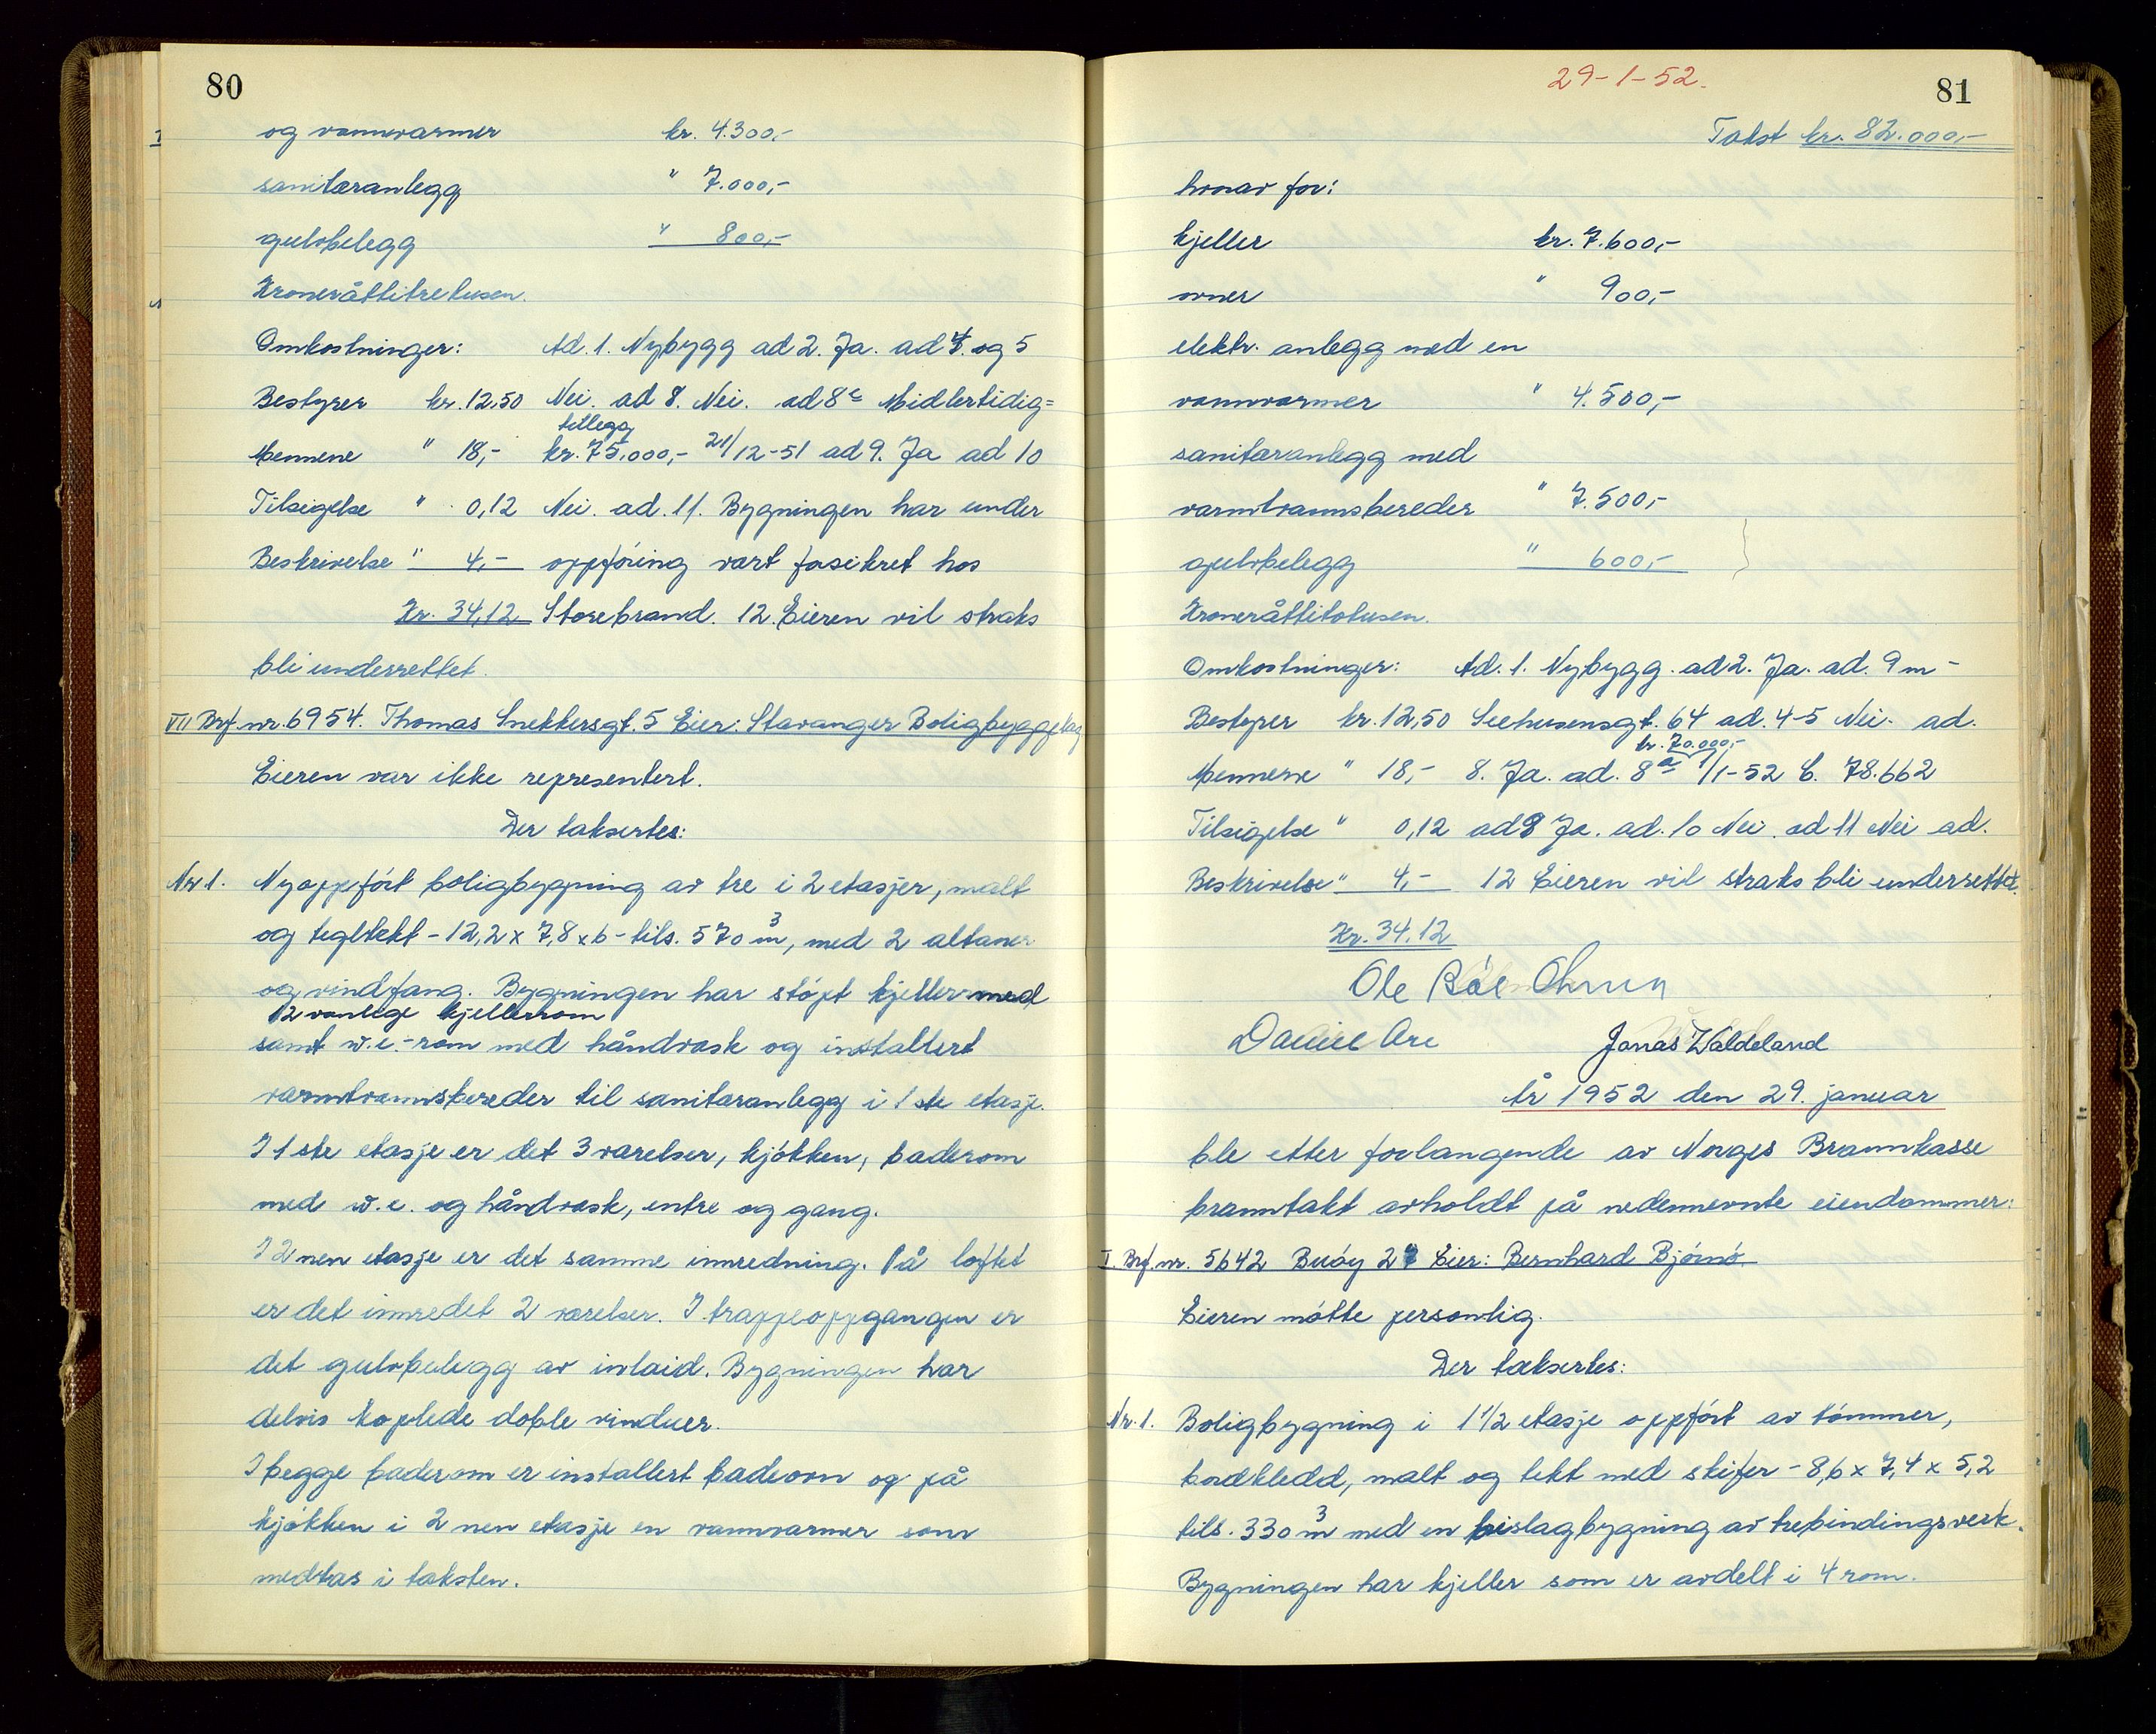 80
og vannvarmer kr. 4.300,-
sanitæranlegg " 7.000,-
gulvbelegg " 800,-
Kroneråttitretusen.
Omkostninger: Ad. 1. Nybygg ad 2. Ja. ad 4. og 5
Bestyrer kr. 12,50 Nei. ad 8. Nei. ad 8c Midlertidig=
tillegg
Mennene " 18,- kr. 75.000,- 21/12-51 ad 9. Ja ad 10
Tilsigelse " 0,12 Nei. ad. 11. Bygningen har under
Beskrivelse " 4,- oppföring vært fosikret hos
Kr. 34,12 Storebrand. 12. Eieren vil straks
bli underrettet.
VII Brf. nr. 6954. Thomas Snekkersgt. 5 Eier: Stavanger Boligbyggelag
Eieren var ikke representert.
Der taksertes:
Nr 1. Nyoppfört boligbygning av tre i 2 etasjer, malt
og tegltekt - 12,2 x 7,8 x 6 - tils. 570 m3, med 2 altaner
og vindfang. Bygningen har støpt kjeller med
12 vanlige kjellerrom
samt w.c.-rom med håndvask og installert
varmtvannsbereder til sanitæranlegg i 1ste etasje.
I 1ste etasje er det 3 værelser, kjökken, baderom
med w.c. og håndvask, entre og gang.
I 2nen etasje er det samme innredning. På loftet
er det innredet 2 værelser. I trappeoppgangen er
det gulvbelegg av inlaid. Bygningen har
delvis koplede doble vinduer.
I begge baderom er installert badeovn og på
kjökken i 2nen etasje en vannvarmer som
medtas i taksten.
29-1-52.
81
Takst kr. 82.000,-
hvorav for:
kjeller kr. 7.600,-
ovner " 900,-
elektr. anlegg med en
vannvarmer " 4.500,-
sanitæranlegg med
varmtvannsbereder " 7.500,-
gulvbelegg " 600,-
Kroneråttitotusen.
Omkostninger: Ad. 1. Nybygg. ad 2. Ja. ad. 9 m -
Bestyrer kr. 12,50 Seehusensgt. 64 ad. 4-5 Nei. ad.
kr. 70.000,-
Mennene " 18,- 8. Ja. ad. 8a 1/1-52 C. 78.662
Tilsigelse " 0,12 ad 9 Ja. ad. 10 Nei. ad 11 Nei ad.
Beskrivelse " 4,- 12 Eieren vil straks bli underrettet.
Kr. 34.12
Ole
Jonas Waldeland
År 1952 den 29. januar
ble etter forlangende av Norges Brannkasse
branntakt avholdt på nedennevnte eiendommer:
I. Brf. nr. 5642 Buöy Eier: Bernhard Bjørnö
Eieren mötte personlig.
Der taksertes:
Nr. 1. Boligbygning i 1 1/2 etasje oppfört av tömmer,
bordkledd, malt og tekt med skifer - 8,6 x 7,4 x 5,2
tils. 330 m3 med en bislagbygning av trebindingsverk.
Bygningen har kjeller som er avdelt i 4 rom.